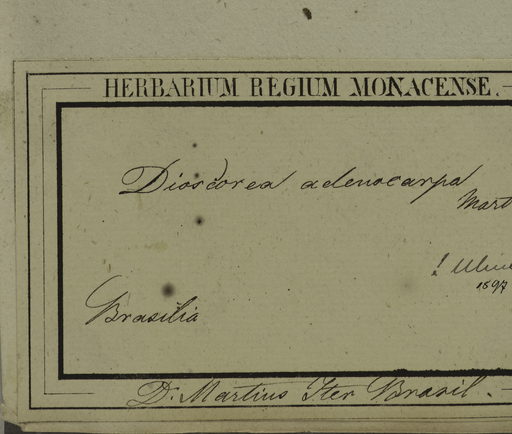 HERBARIUM REGIUM MONACENSE.
Dioscorea adenocarpa
Mart
! Uline
1897
Brasilia
Dr. Martius Iter Brasil.